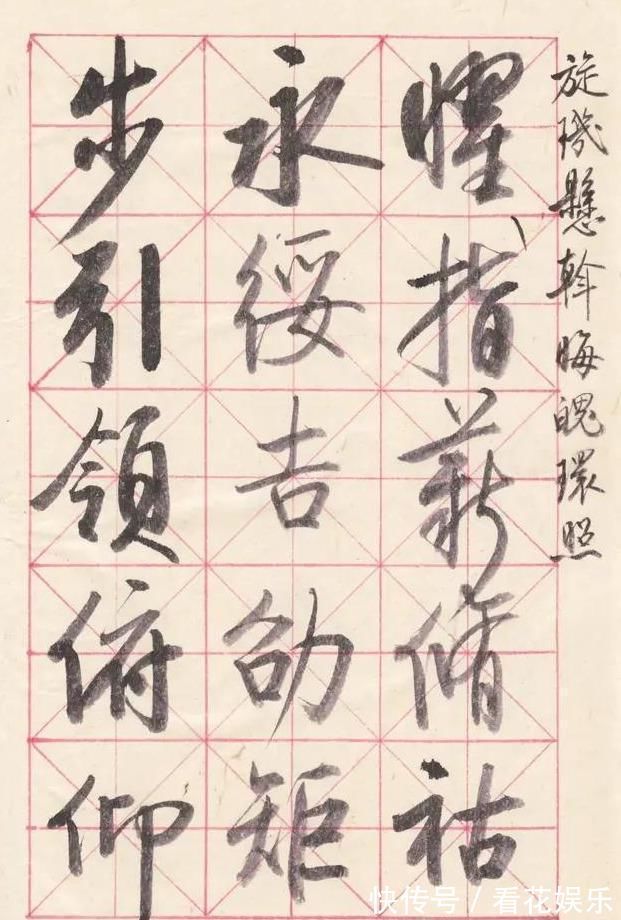 旋璣懸斡晦魄環照
曜指薪脩祜
永綏吉劭矩
步引領俯仰
快传号 / 看花娱乐